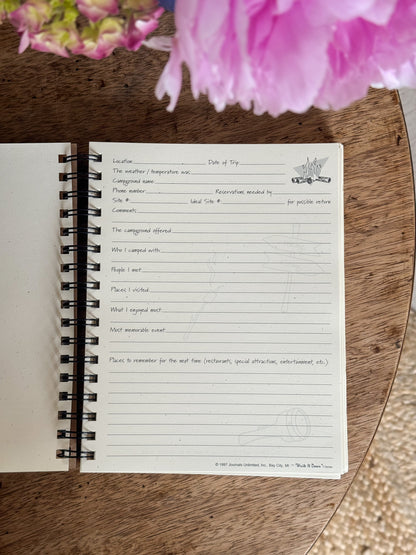 Location Date of Trip
The weather / temperature was
Campground name
Phone number Reservations needed by
Site # Ideal Site # for possible return
Comments
The campground offered
Who I camped with
People I met
Places I visited
What I enjoyed most
Most memorable event
Places to remember for the next time (restaurants, special attractions, entertainment, etc.)
© 1997 Journals Unlimited, Inc., Bay City, MI ~ "Write it Down"